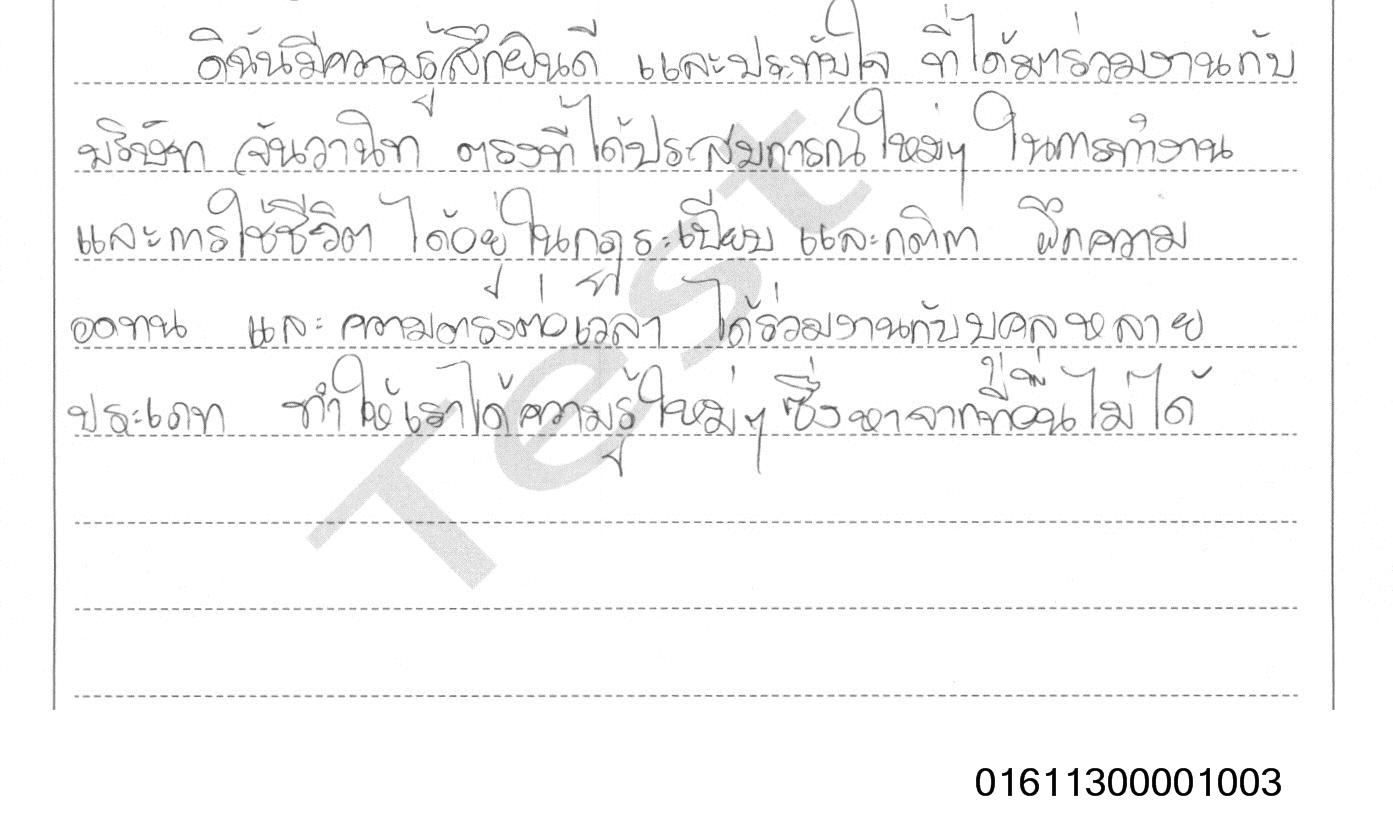 ดิฉันมีความรู้สึกยินดี และประทับใจ ที่ได้มาร่วมงานกับ
บริษัท จันวานิช ตรงที่ได้ประสบการณ์ใหม่ๆ ในการทำงาน
และการใช้ชีวิต ได้อยู่ในกฎระเบียบ และกติกา ฝึกความ
อดทน และความตรงต่อเวลา ได้ร่วมงานกับบุคคลหลาย
ประเภท ทำให้เราได้ความรู้ใหม่ๆ ซึ่งหาจากที่อื่นไม่ได้
Test
01611300001003